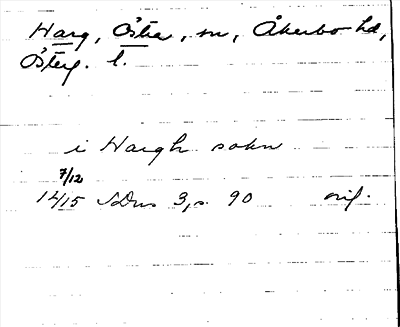 Harg, Östra, sn, Åkerbo hd,
Österg. l.
i Hargh sokn
7/12
1415 SDns 3, s. 90 orig.